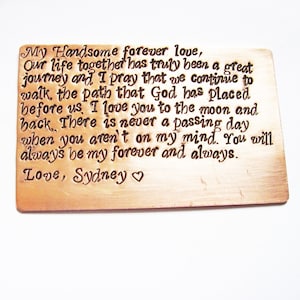 My Handsome forever love,
Our life together has truly been a great
journey and I pray that we continue to
walk the path that God has placed
before us. I love you to the moon and
back. There is never a passing day
when you aren't on my mind. You will
always be my forever and always.
Love, Sydney ♡